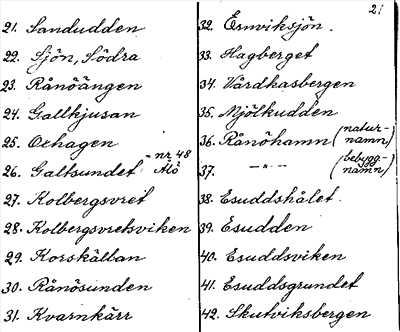 21
21. Sandudden
22. Sjön, Södra
23. Rånöängen
24. Gallkjusan
25. Oxhagen
26. Galtsundet = nr 48 Alö
27. Kolbergsvret
28. Kolbergsvretsviken
29. Korskällan
30. Rånösunden
31. Kvarnkärr
32. Ermviksjön.
33. Hagberget
34. Vårdkasbergen
35. Mjölkudden
36. Rånöhamn (natur-namn)
37. -"- (bebygg-namn)
38. Esuddshålet.
39. Esudden
40. Esuddsviken
41. Esuddsgrundet
42. Skutviksbergen